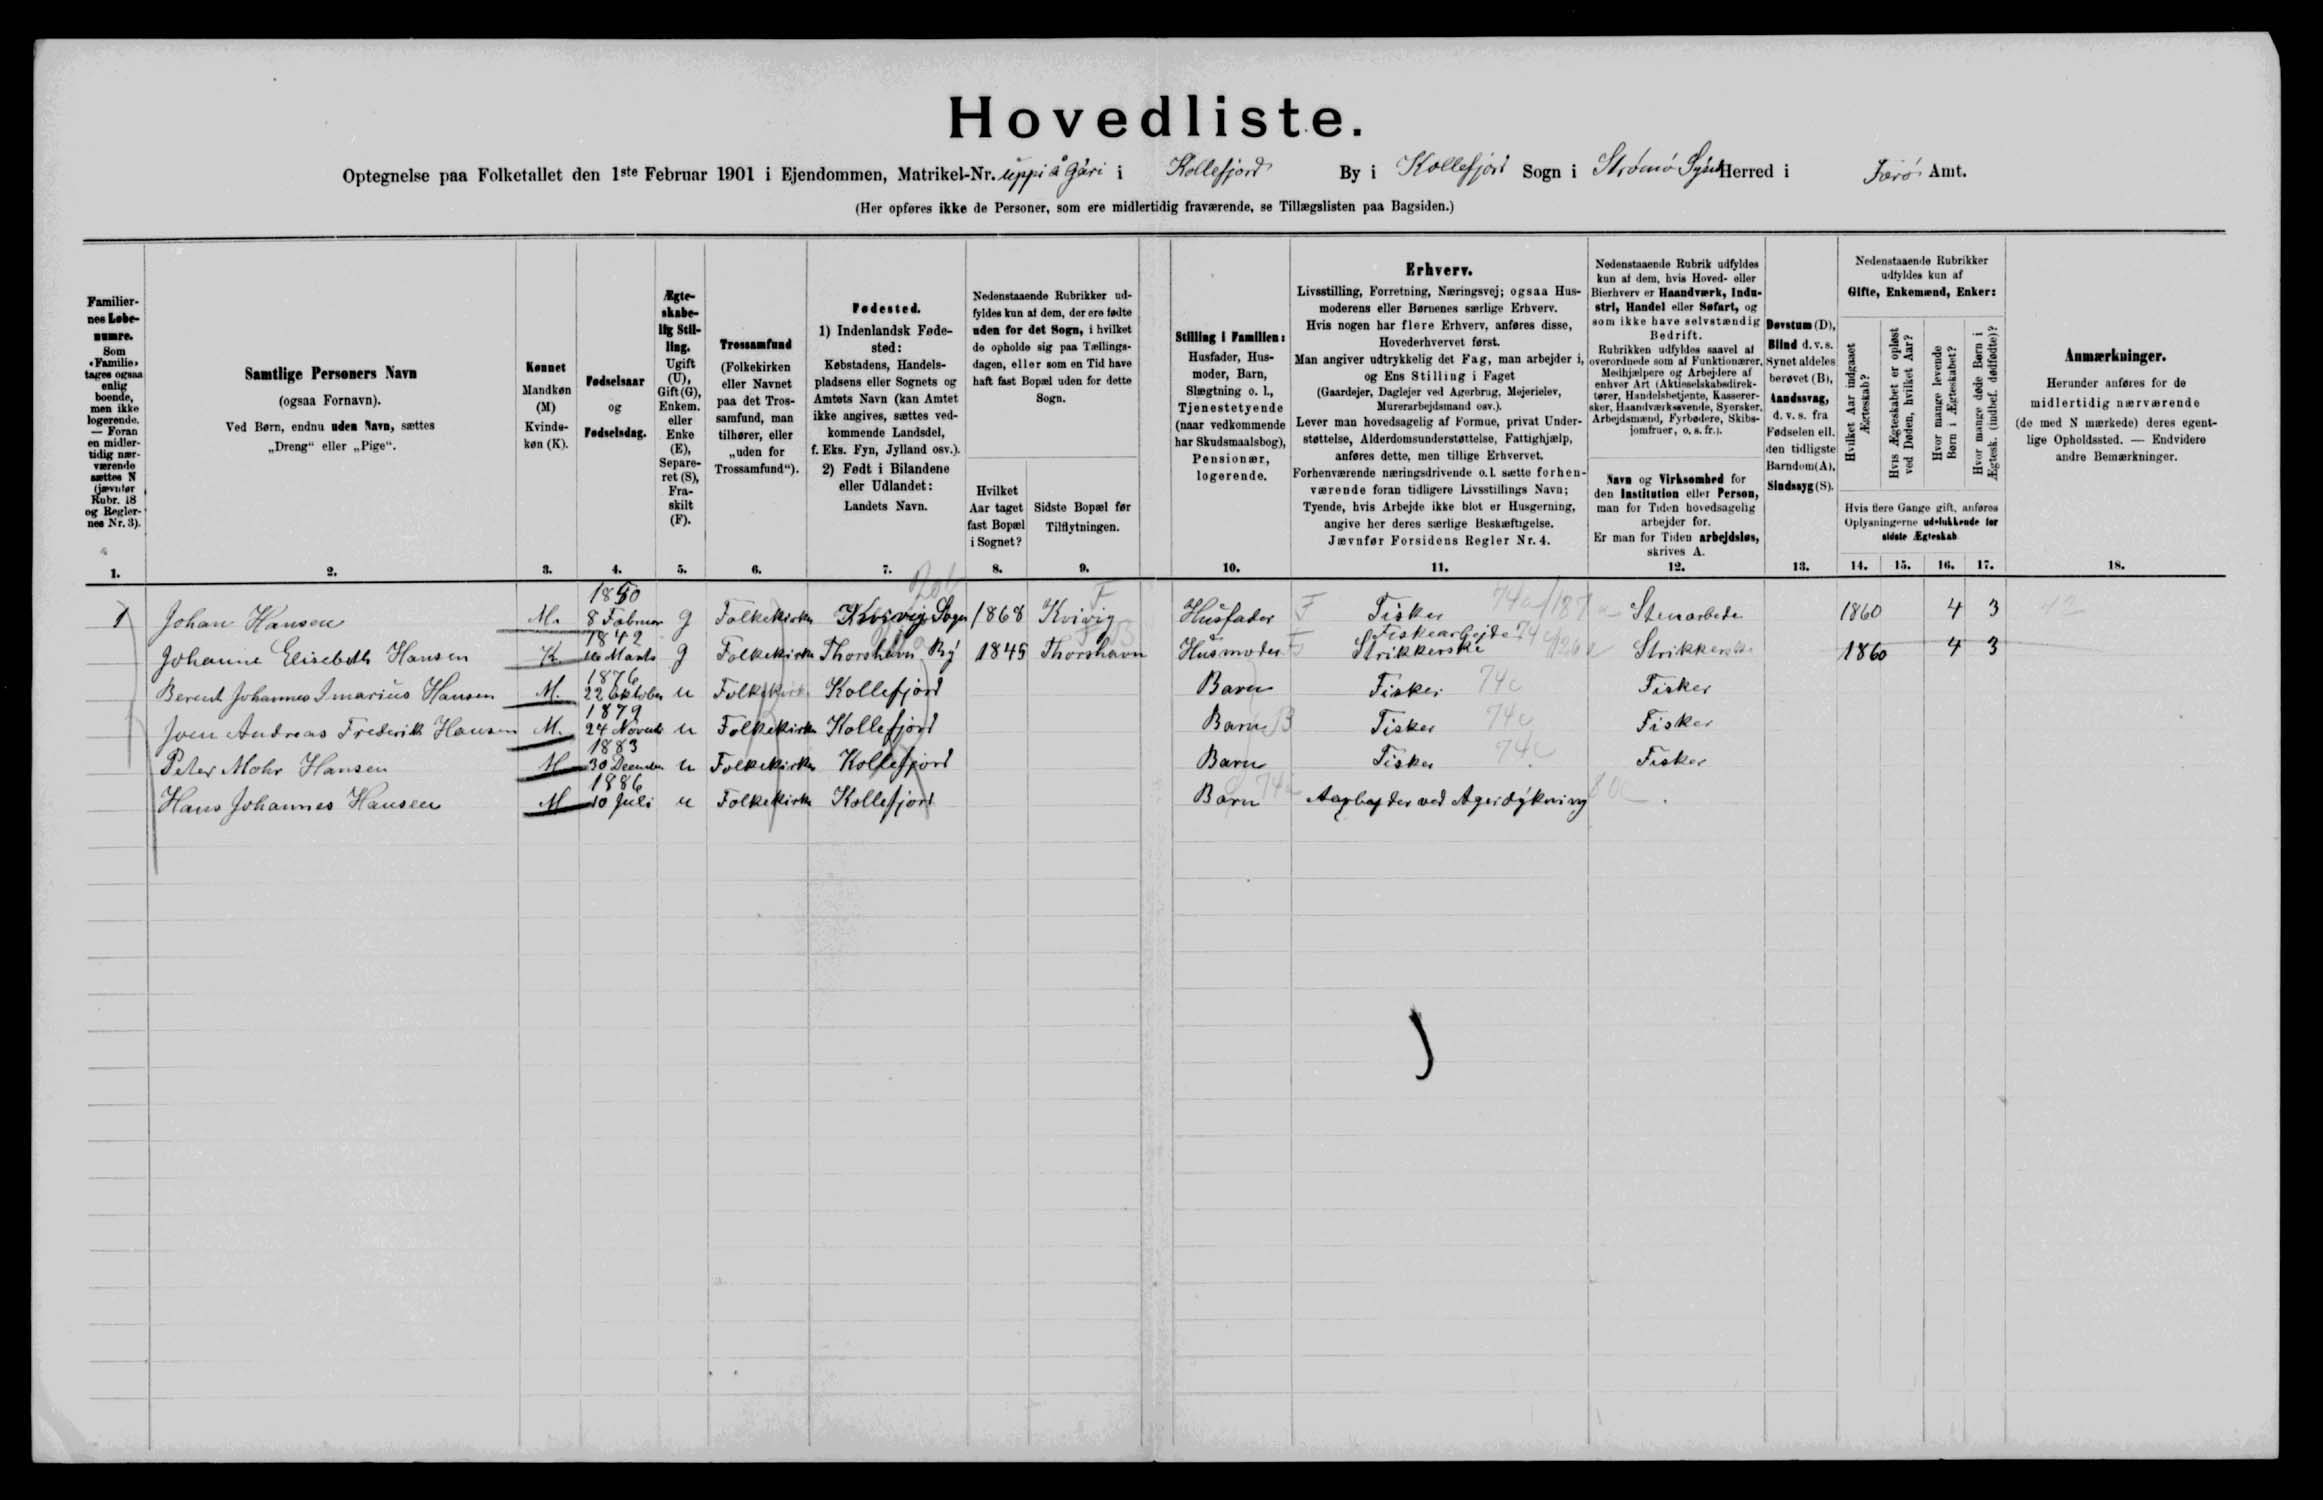 Hovedliste.
Optegnelse paa Folketallet den 1ste Februar 1901 i Ejendommen, Matrikel-Nr. uppi å Gári i Kollefjord By i Kollefjord Sogn i Strømø Syssel Herred i Færø Amt.
(Her opføres ikke de Personer, som ere midlertidig fraværende, se Tillægslisten paa Bagsiden.)
Familiernes Løbenumre.
Som «Familie» tages ogsaa enlig boende, men ikke logerende. — Foran en midlertidig nærværende sættes N (jævnfør Rubr. 18 og Reglernes Nr. 3).
Samtlige Personers Navn
(ogsaa Fornavn).
Ved Børn, endnu uden Navn, sættes
„Dreng“ eller „Pige“.
Kønnet
Mandkøn (M)
Kvindekøn (K).
Fødselsaar
og
Fødselsdag.
Ægteskabelig Stilling.
Ugift (U), Gift (G), Enkem. eller Enke (E), Separeret (S), Fraskilt (F).
Trossamfund
(Folkekirken eller Navnet paa det Trossamfund, man tilhører, eller „uden for Trossamfund“).
Fødested.
1) Indenlandsk Fødested:
Købstadens, Handelspladsens eller Sognets og Amtets Navn (kan Amtet ikke angives, sættes vedkommende Landsdel, f. Eks. Fyn, Jylland osv.).
2) Født i Bilandene eller Udlandet:
Landets Navn.
Nedenstaaende Rubrikker udfyldes kun af dem, der ere fødte uden for det Sogn, i hvilket de opholde sig paa Tællingsdagen, eller som en Tid have haft fast Bopæl uden for dette Sogn.
Hvilket Aar taget fast Bopæl i Sognet?
Sidste Bopæl før Tilflytningen.
Stilling i Familien:
Husfader, Husmoder, Barn, Slægtning o. l., Tjenestetyende (naar vedkommende har Skudsmaalsbog), Pensionær, logerende.
Erhverv.
Livsstilling, Forretning, Næringsvej; ogsaa Husmoderens eller Børnenes særlige Erhverv.
Hvis nogen har flere Erhverv, anføres disse, Hovederhvervet først.
Man angiver udtrykkelig det Fag, man arbejder i, og Ens Stilling i Faget
(Gaardejer, Daglejer ved Agerbrug, Mejerielev, Murerarbejdsmand osv.).
Lever man hovedsagelig af Formue, privat Understøttelse, Alderdomsunderstøttelse, Fattighjælp, anføres dette, men tillige Erhvervet.
Forhenværende næringsdrivende o. l. sætte forhenværende foran tidligere Livsstillings Navn;
Tyende, hvis Arbejde ikke blot er Husgerning, angive her deres særlige Beskæftigelse.
Jævnfør Forsidens Regler Nr. 4.
Nedenstaaende Rubrik udfyldes kun af dem, hvis Hoved- eller Bierhverv er Haandværk, Industri, Handel eller Søfart, og som ikke have selvstændig Bedrift.
Rubrikken udfyldes saavel af overordnede som af Funktionærer, Medhjælpere og Arbejdere af enhver Art (Aktieselskabsdirektører, Handelsbetjente, Kasserersker, Haandværkssvende, Syersker, Arbejdsmænd, Fyrbødere, Skibsjomfruer, o. s. fr.).
Navn og Virksomhed for den Institution eller Person, man for Tiden hovedsagelig arbejder for.
Er man for Tiden arbejdsløs, skrives A.
Døvstum (D), Blind d. v. s. Synet aldeles berøvet (B), Aandssvag, d. v. s. fra Fødselen ell. den tidligste Barndom (A), Sindssyg (S).
Nedenstaaende Rubrikker udfyldes kun af
Gifte, Enkemænd, Enker:
Hvilket Aar indgaaet Ægteskab?
Hvis Ægteskabet er opløst ved Døden, hvilket Aar?
Hvor mange levende Børn i Ægteskabet?
Hvor mange døde Børn i Ægtesk. (indbef. dødfødte)?
Hvis flere Gange gift, anføres Oplysningerne udelukkende for sidste Ægteskab
Anmærkninger.
Herunder anføres for de midlertidig nærværende (de med N mærkede) deres egentlige Opholdssted. — Endvidere andre Bemærkninger.
1. 2. 3. 4. 5. 6. 7. 8. 9. 10. 11. 12. 13. 14. 15. 16. 17. 18.
1 Johan Hansen M. 1850 8 Februar g Folkekirken Kvivig Sogn 1868 Kvivig Husfader F Fisker 74a Stenarbede 1860 4 3 12
Johanne Elisebeth Hansen K 1842 16 Marts g Folkekirken Thorshavn By 1845 Thorshavn Husmoder F Fiskearbejde Strikkerske 74c Strikkerske 1860 4 3
Berent Johannes Imarius Hansen M. 1876 22 Oktober u Folkekirk Kollefjord Barn Fisker 74c Fisker
Joen Andreas Frederik Hansen M. 1879 24 Novemb u Folkekirken Kollefjord Barn B Fisker 74c Fisker
Peter Mohr Hansen M 1883 30 December u Folkekirken Kollefjord Barn Fisker 74c Fisker
Hans Johannes Hansen M 1886 10 Juli u Folkekirke Kollefjord Barn 74c Aarbajder ved Agerdýkning